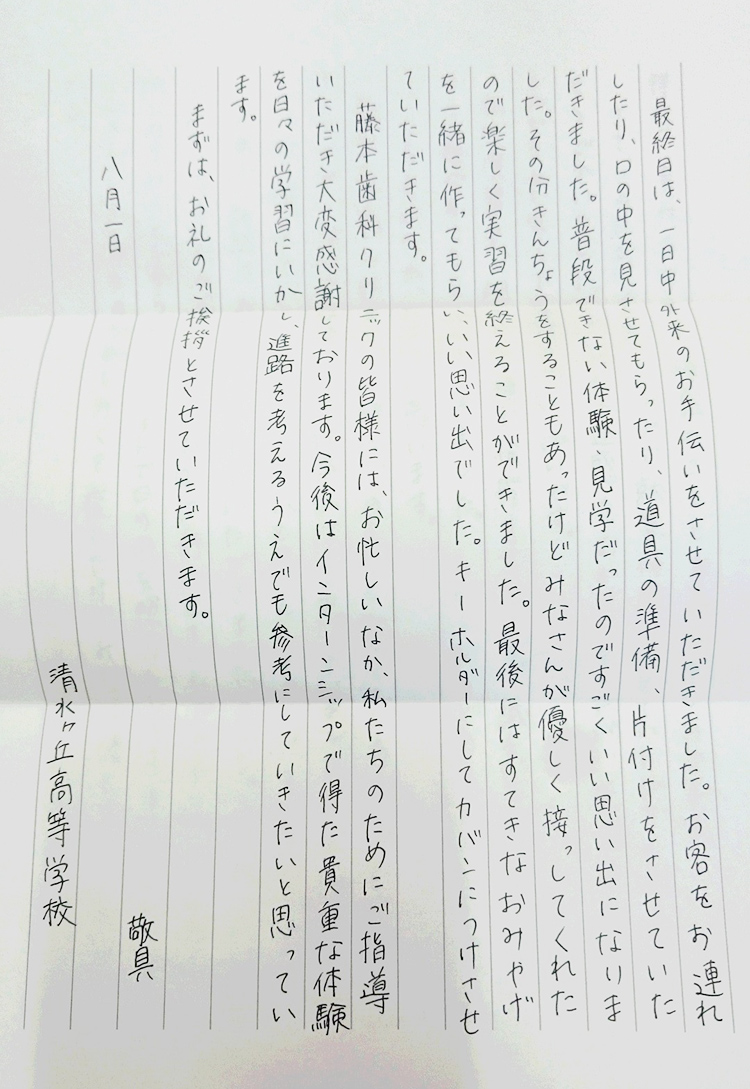 最終日は、一日中外来のお手伝いをさせていただきました。お客をお連れ
したり、口の中を見させてもらったり、道具の準備、片付けをさせていた
だきました。普段できない体験、見学だったのですごくいい思い出になりま
した。その分きんちょうをすることもあったけどみなさんが優しく接っしてくれた
ので楽しく実習を終えることができました。最後にはすてきなおみやげ
を一緒に作ってもらい、いい思い出でした。キーホルダーにしてカバンにつけさせ
ていただきます。
藤本歯科クリニックの皆様には、お忙しいなか、私たちのためにご指導
いただき大変感謝しております。今後はインターンシップで得た貴重な体験
を日々の学習にいかし、進路を考えるうえでも参考にしていきたいと思ってい
ます。
まずは、お礼のご挨拶とさせていただきます。
敬具
八月一日
清水ヶ丘高等学校